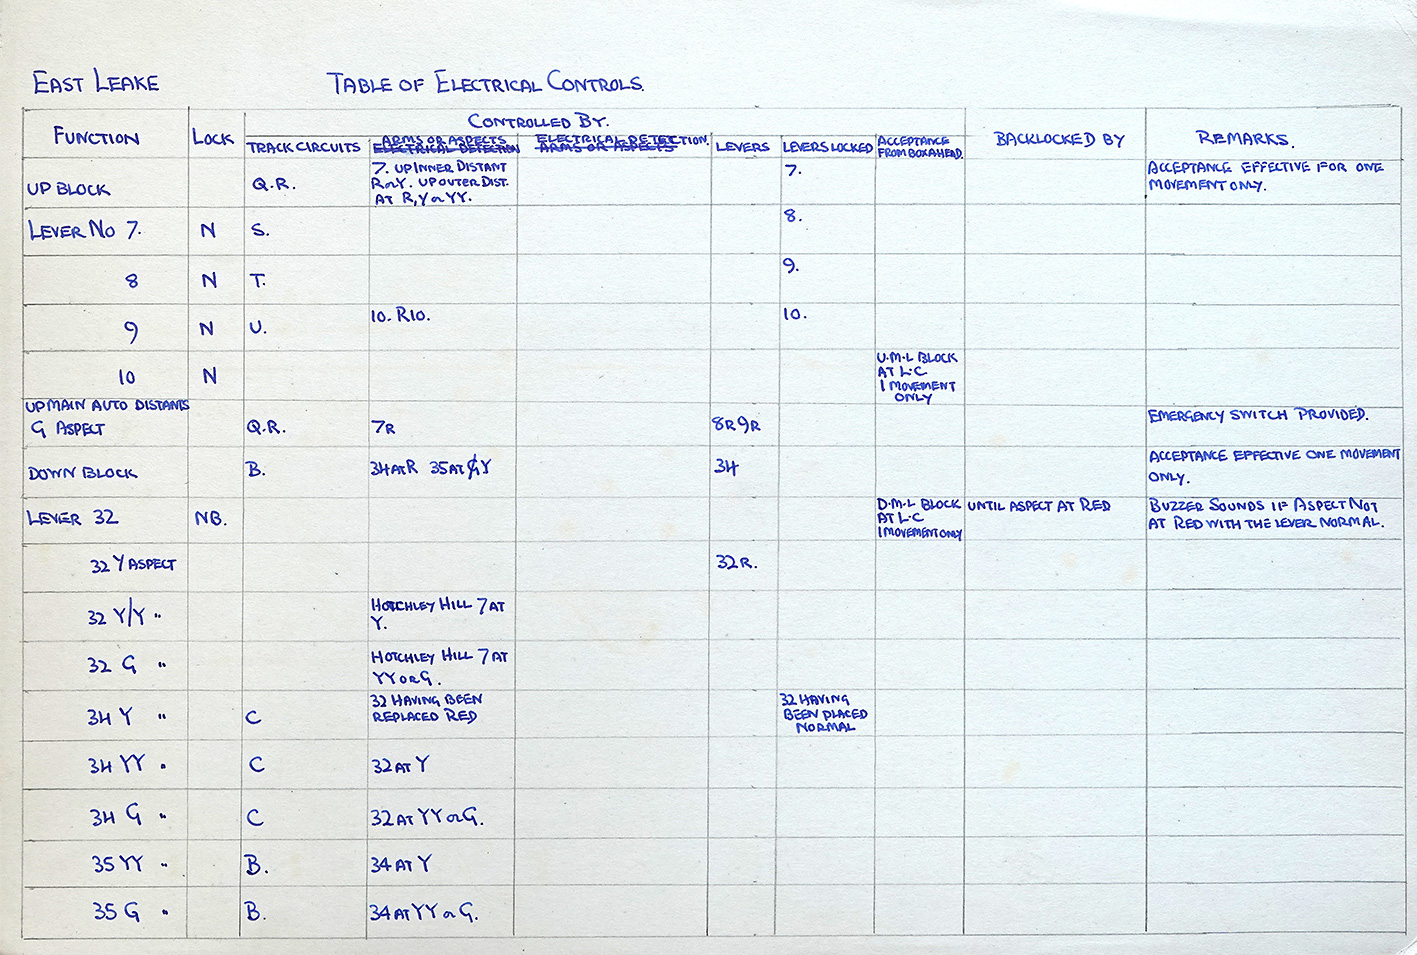 EAST LEAKE TABLE OF ELECTRICAL CONTROLS.
CONTROLLED BY.
FUNCTION LOCK TRACK CIRCUITS ARMS OR ASPECTS ELECTRICAL DETECTION. LEVERS LEVERS LOCKED ACCEPTANCE BACKLOCKED BY REMARKS.
ELECTRICAL DETECTION ARMS OR ASPECTS FROM BOX AHEAD.
UP BLOCK Q.R. 7. UP INNER DISTANT 7. ACCEPTANCE EFFECTIVE FOR ONE
R OR Y. UP OUTER DIST. MOVEMENT ONLY.
AT R, Y OR YY.
LEVER No 7. N S. 8.
8 N T. 9.
9 N U. 10. R10. 10.
10 N U.M.L BLOCK
AT L.C
1 MOVEMENT
ONLY
UP MAIN AUTO DISTANTS
G ASPECT Q.R. 7R 8R 9R EMERGENCY SWITCH PROVIDED.
DOWN BLOCK B. 34 AT R 35 AT Y 34 ACCEPTANCE EFFECTIVE ONE MOVEMENT
ONLY.
LEVER 32 NB. D.M.L BLOCK UNTIL ASPECT AT RED BUZZER SOUNDS IF ASPECT NOT
AT L.C AT RED WITH THE LEVER NORMAL.
1 MOVEMENT ONLY
32 Y ASPECT 32R.
32 Y/Y " HOTCHLEY HILL 7 AT
Y.
32 G " HOTCHLEY HILL 7 AT
YY OR G.
34 Y " C 32 HAVING BEEN 32 HAVING
REPLACED RED BEEN PLACED
NORMAL
34 YY " C 32 AT Y
34 G " C 32 AT YY OR G.
35 YY " B. 34 AT Y
35 G " B. 34 AT YY OR G.